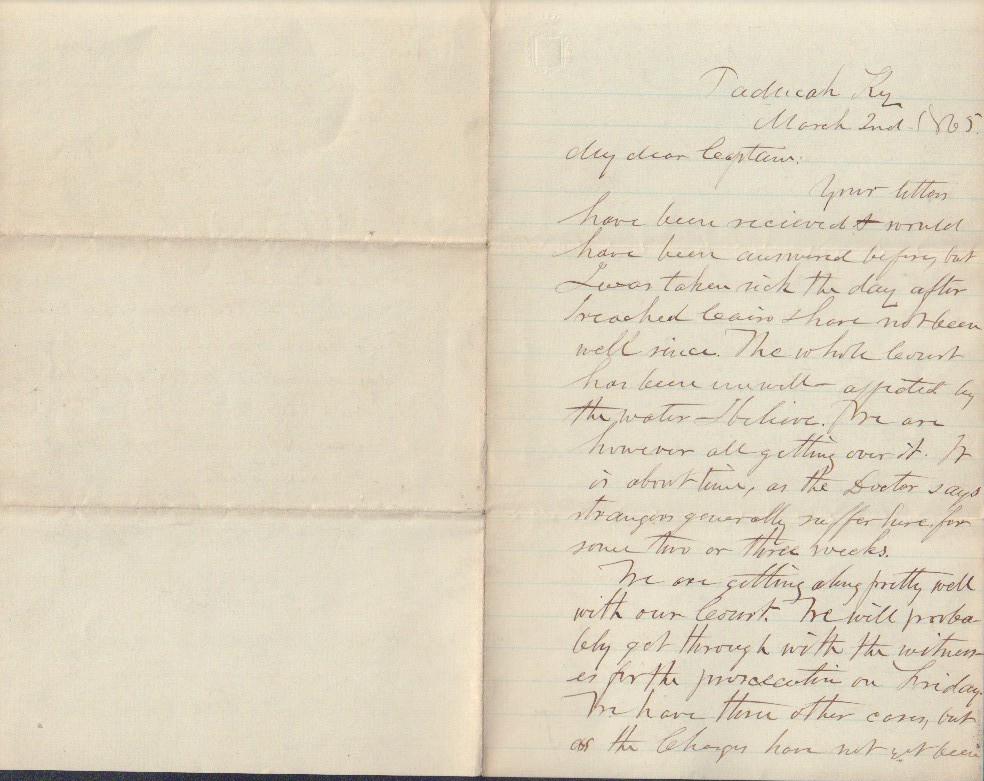 Paducah Ky
March 2nd 1865.
My dear Captain:
Your letters
have been recieved & would
have been answered before, but
I was taken sick the day after
I reached Cairo & have not been
well since. The whole Court
has been unwell - affected by
the water - I believe. We are
however all getting over it. It
is about time, as the Doctor says
strangers generally suffer here for
some two or three weeks.
We are getting along pretty well
with our Court. We will proba-
bly get through with the witness-
es for the prosecution on Friday.
We have three other cases, but
as the Charges have not yet been